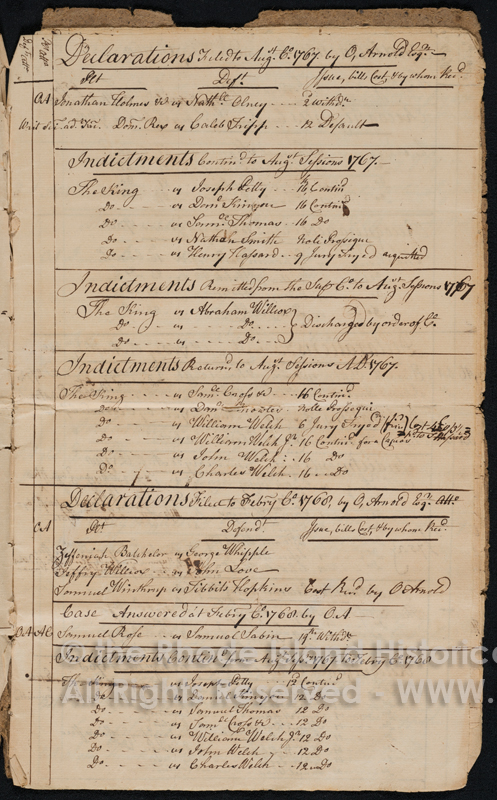 Declarations Filed to Augt. Ct. 1767. by O, Arnold Esqr.
Plt Deft. Issue, bills Cost, & by whom Recd.
OA Jonathan Holmes vs Nathll. Olney 2 Withdn.
Dom. Rex vs Caleb Tripp 12 Default
Indictments Continud. to Augst. Sessions 1767.
The King vs Joseph Petty 16 Continud.
Do vs Doml. Kinyon 16 Continud.
Do vs Saml. Thomas 16 Do
Do vs Nathan Smith Nole Prosequi
Do vs Henry Hassard 9 Jury Tryed acquitted
Indictments Remitted from the Supr. Ct. to Augst. Sessions 1767
The King vs Abraham Willcox
Do Do Discharged by order of Ct.
Do Do
Indictments Returnd. to Augst. Sessions A.D. 1767.
The King vs Saml. Cross &c 16 Continud.
Do vs Knowles Nolle Prossequi
Do vs William Welch 6 Jury Tryed
Do vs William Welch Jr. 16 Continud. for a Capias
Do vs John Welch 16 Do
Do vs Charles Welch 16 Do
Declarations Filed to Febry Ct. 1768, by O, Arnold Esqr. Atto.
OA Plt Defendt. Issue, bills Cost, & by whom Recd.
Zepheniah Batcheler vs George Whipple
Jeffry Willcox vs John Love
Samuel Winthrup vs Tibbits Hopkins Cost Recd. by O Arnold
Case Answered at Febry Ct. 1768. by O.A
OA AC Samuel Rose vs Samuel Tabin
Indictments Contind. from Augt. 1767 to Febry Ct. 1768
The King vs Joseph Petty 12 Continud.
Do vs 12 Do
Do vs Samuel Thomas 12 Do
Do vs Saml. Cross &c 12 Do
Do vs William Welch Jr. 12 Do
Do vs John Welch 12 Do
Do vs Charles Welch 12 Do
© The Rhode Island Historic
All Rights Reserved - www.